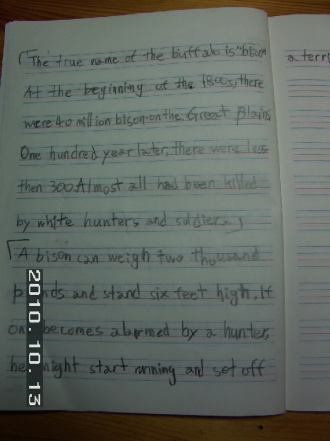 The true name of the buffalo is "bison
At the beginning of the 1800s, there
were 40 million bison on the Great Plains
One hundred year later, there were less
then 300. Almost all had been killed
by white hunters and soldiers,
A bison can weigh two thousand
and stand six feet high. If
becomes alarmed by a hunter,
he might start running and set off
a terri
2010.10.13